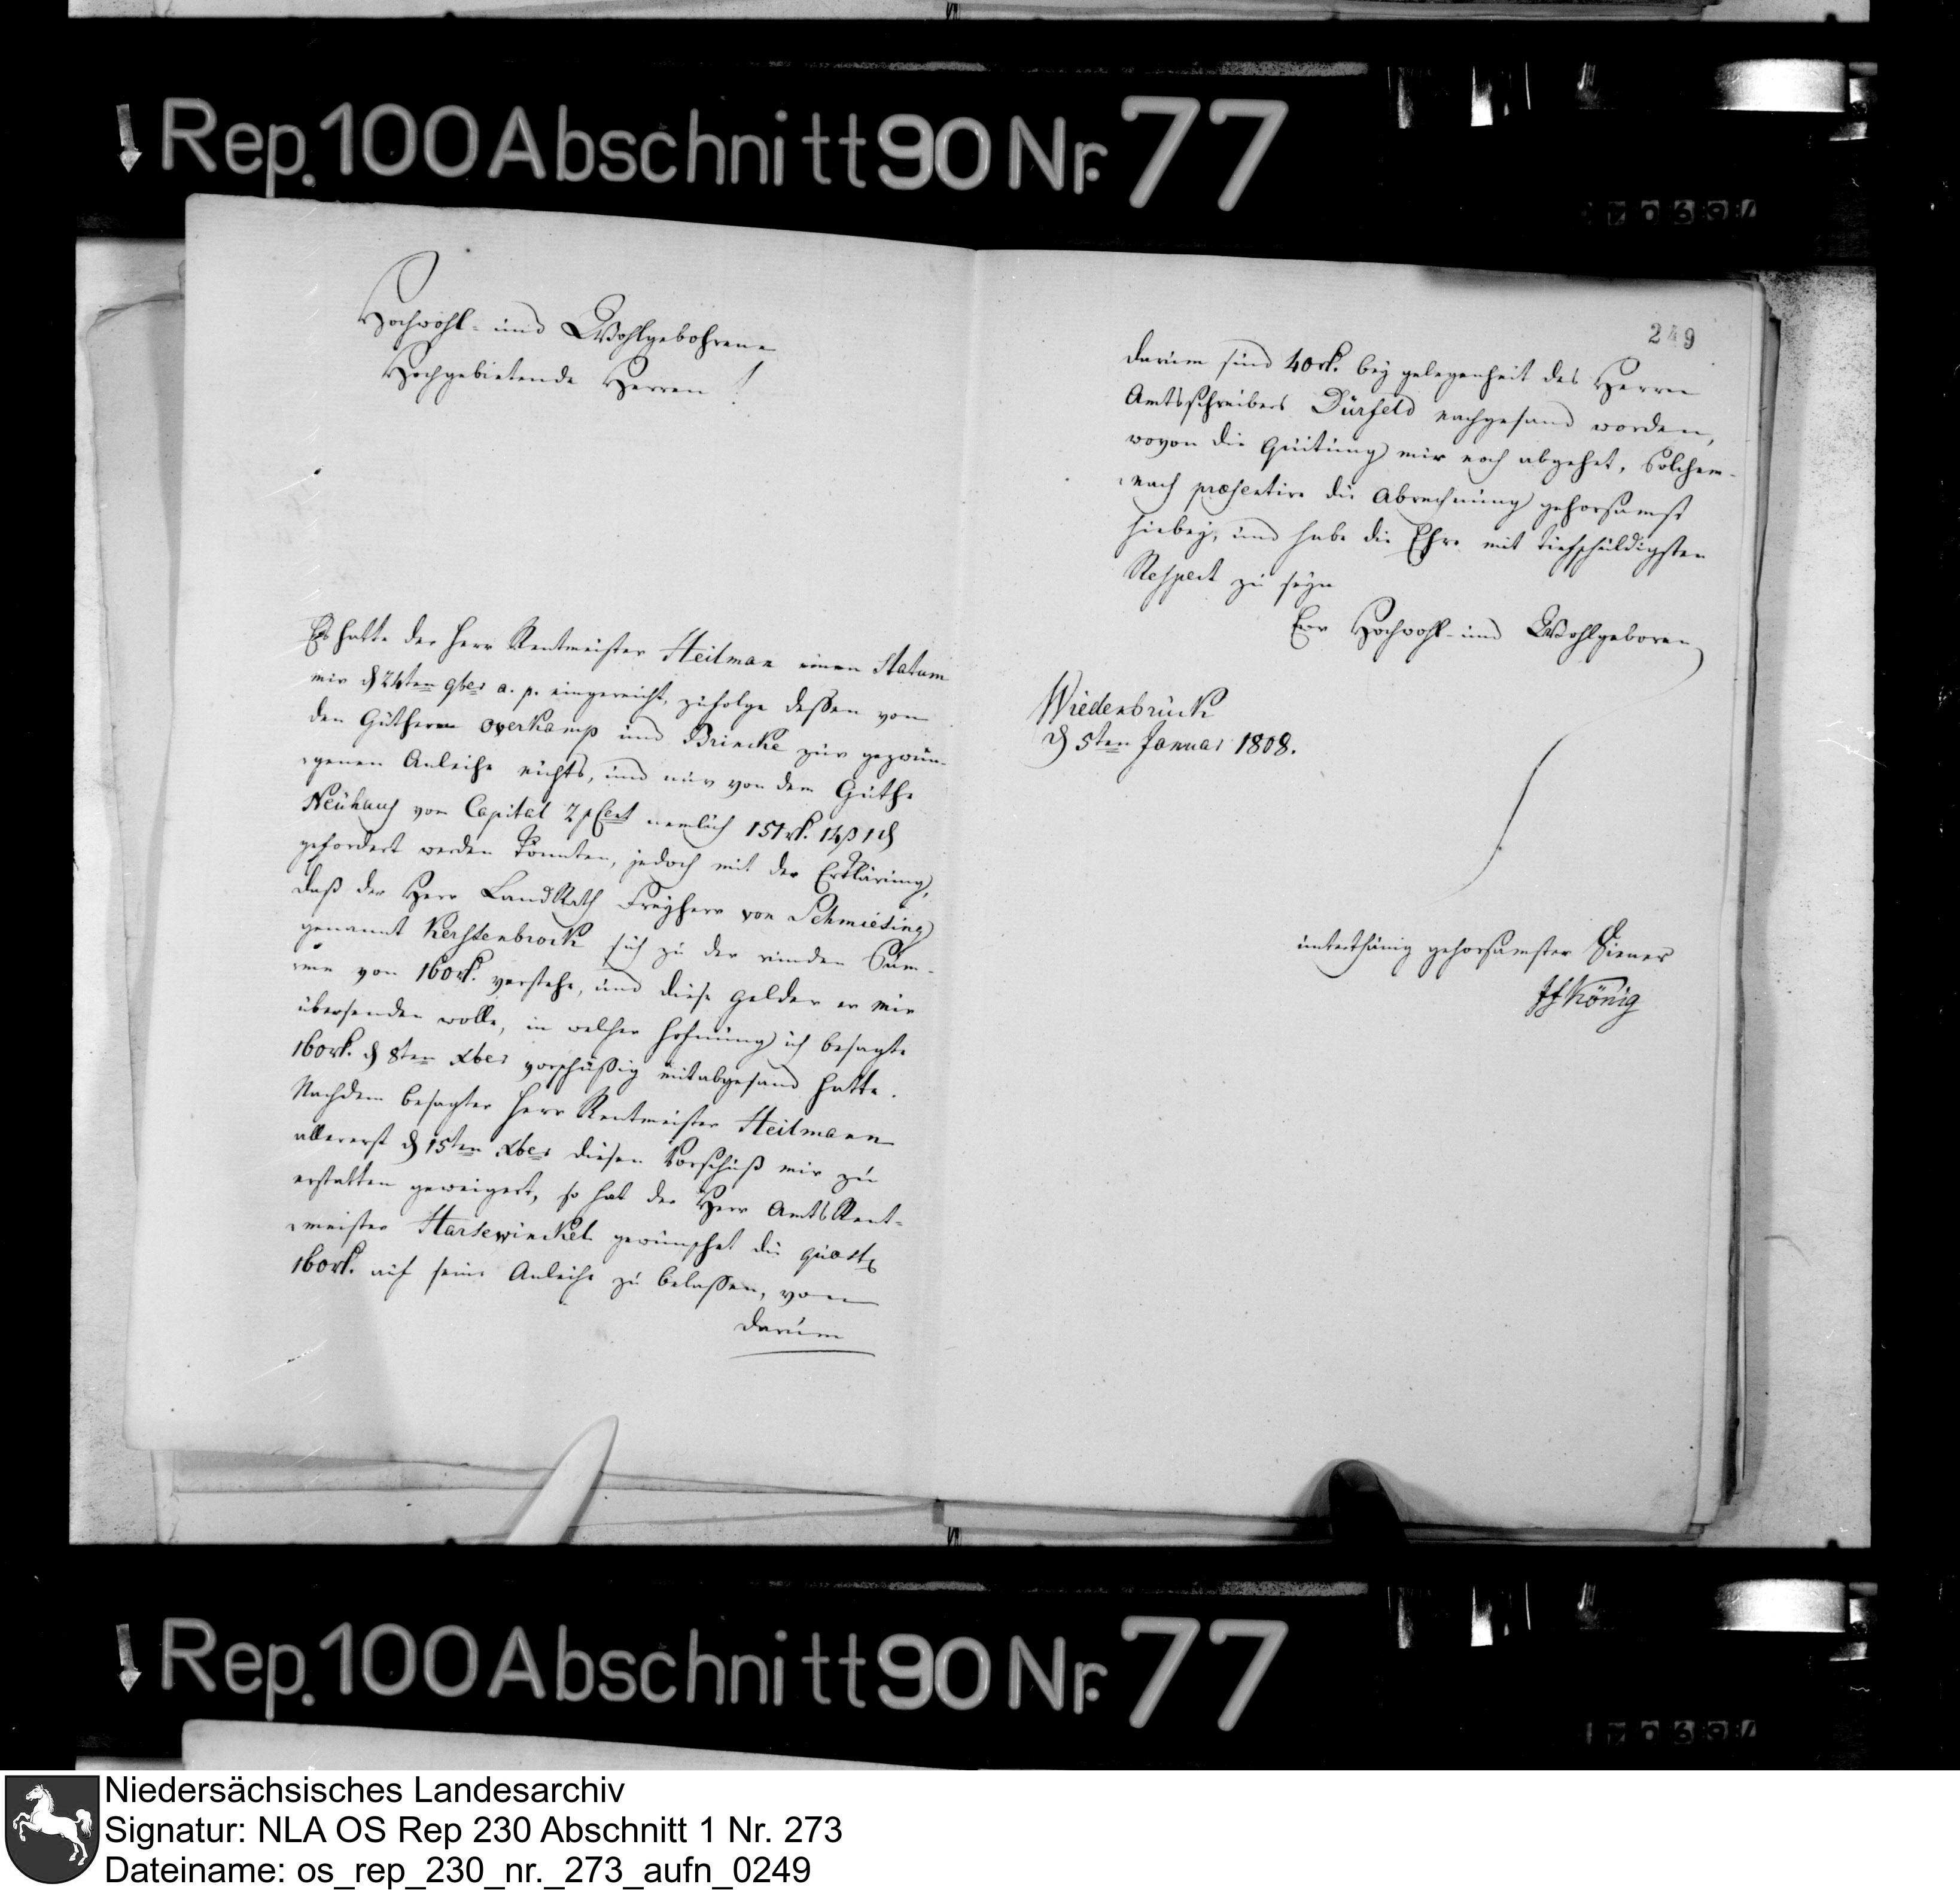 Rep. 100 Abschnitt 90 Nr. 77
Hochwohl- und Wohlgebohrene
Hochgebietende Herren!
Es hatte der Herr Rentmeister Heilman einen Statum
mir d 24ten 9ber a. p. eingereicht, zufolge dessen von
den Gütheren Overkamp und Brincke zur gezwun-
genen Anleihe nichts, und nur von dem Guthe
Neuhaus von Capital 2 pCent nemlich 151 rt. 14 ß 1 d
gefordert werden könnten, jedoch mit der Erklärung,
daß der Herr LandRath Freyherr von Schmiesing
genannt Kerssenbrock sich zu der runden Sum-
me von 160 rt. verstehe, und diese Gelder er mir
übersenden wolle, in welcher Hofnung ich besagte
160 rt. d 8ten xber vorschüßig mitabgesand hatte.
Nachdem besagter Herr Rentmeister Heilmann
allererst d 15ten xber diesen Vorschuß mir zu
erstatten geweigert, so hat der Herr AmtsRent-
meister Harsewinckel gewünschet die quaest.
160 rt. auf seine Anleihe zu belassen, von
darum
249
darum sind 40 rt. bey gelegenheit des Herren
Amtsschreibers Dürfeld nachgesand worden,
wovon die Quitung mir noch abgehet, Solchem-
nach præsentire die Abrechnung gehorsamst
hiebey, und habe die Ehre mit tiefschuldigsten
Respect zu seyn
Ewr Hochwohl- und Wohlgeboren
Wiedenbrück
d 5ten Januar 1808.
unterthänig gehorsamster Diener
König
Rep. 100 Abschnitt 90 Nr. 77
Niedersächsisches Landesarchiv
Signatur: NLA OS Rep 230 Abschnitt 1 Nr. 273
Dateiname: os_rep_230_nr._273_aufn_0249